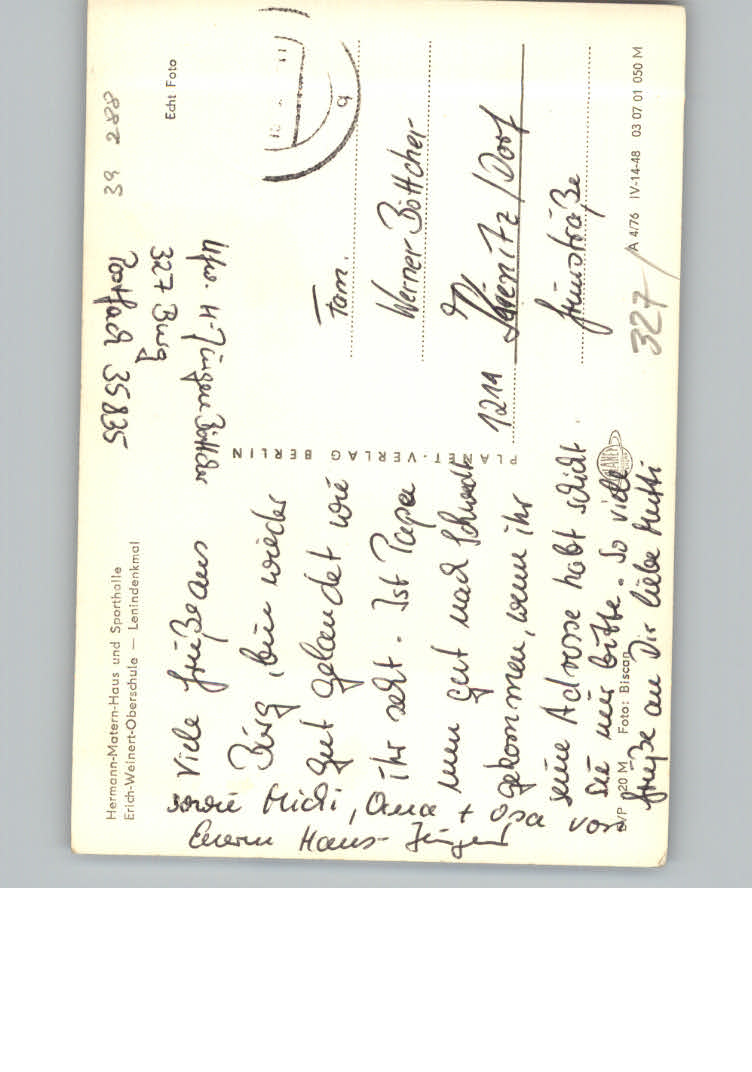 Hermann-Matern-Haus und Sporthalle
Erich-Weinert-Oberschule — Lenindenkmal
Viele Grüße aus
Burg, bin wieder
gut gelandet wie
ihr seht. Ist Papa
nun gut nach Schwedt
gekommen, wenn ihr
seine Adresse habt schickt
sie mir bitte. So viele
Grüße an Dir liebe Mutti
sowie Michi, Oma + Opa von
Euern Hans-Jürgen
EVP 0,20 M Foto: Biscan
PLANET-VERLAG BERLIN
PLANET
39 288
Echt Foto
Ufw. H-Jürgen Böttcher
327 Burg
Postfach 35835
Fam.
Werner Böttcher
1211
/Dorf
327
A 4/76 IV-14-48 03 07 01 050 M
a